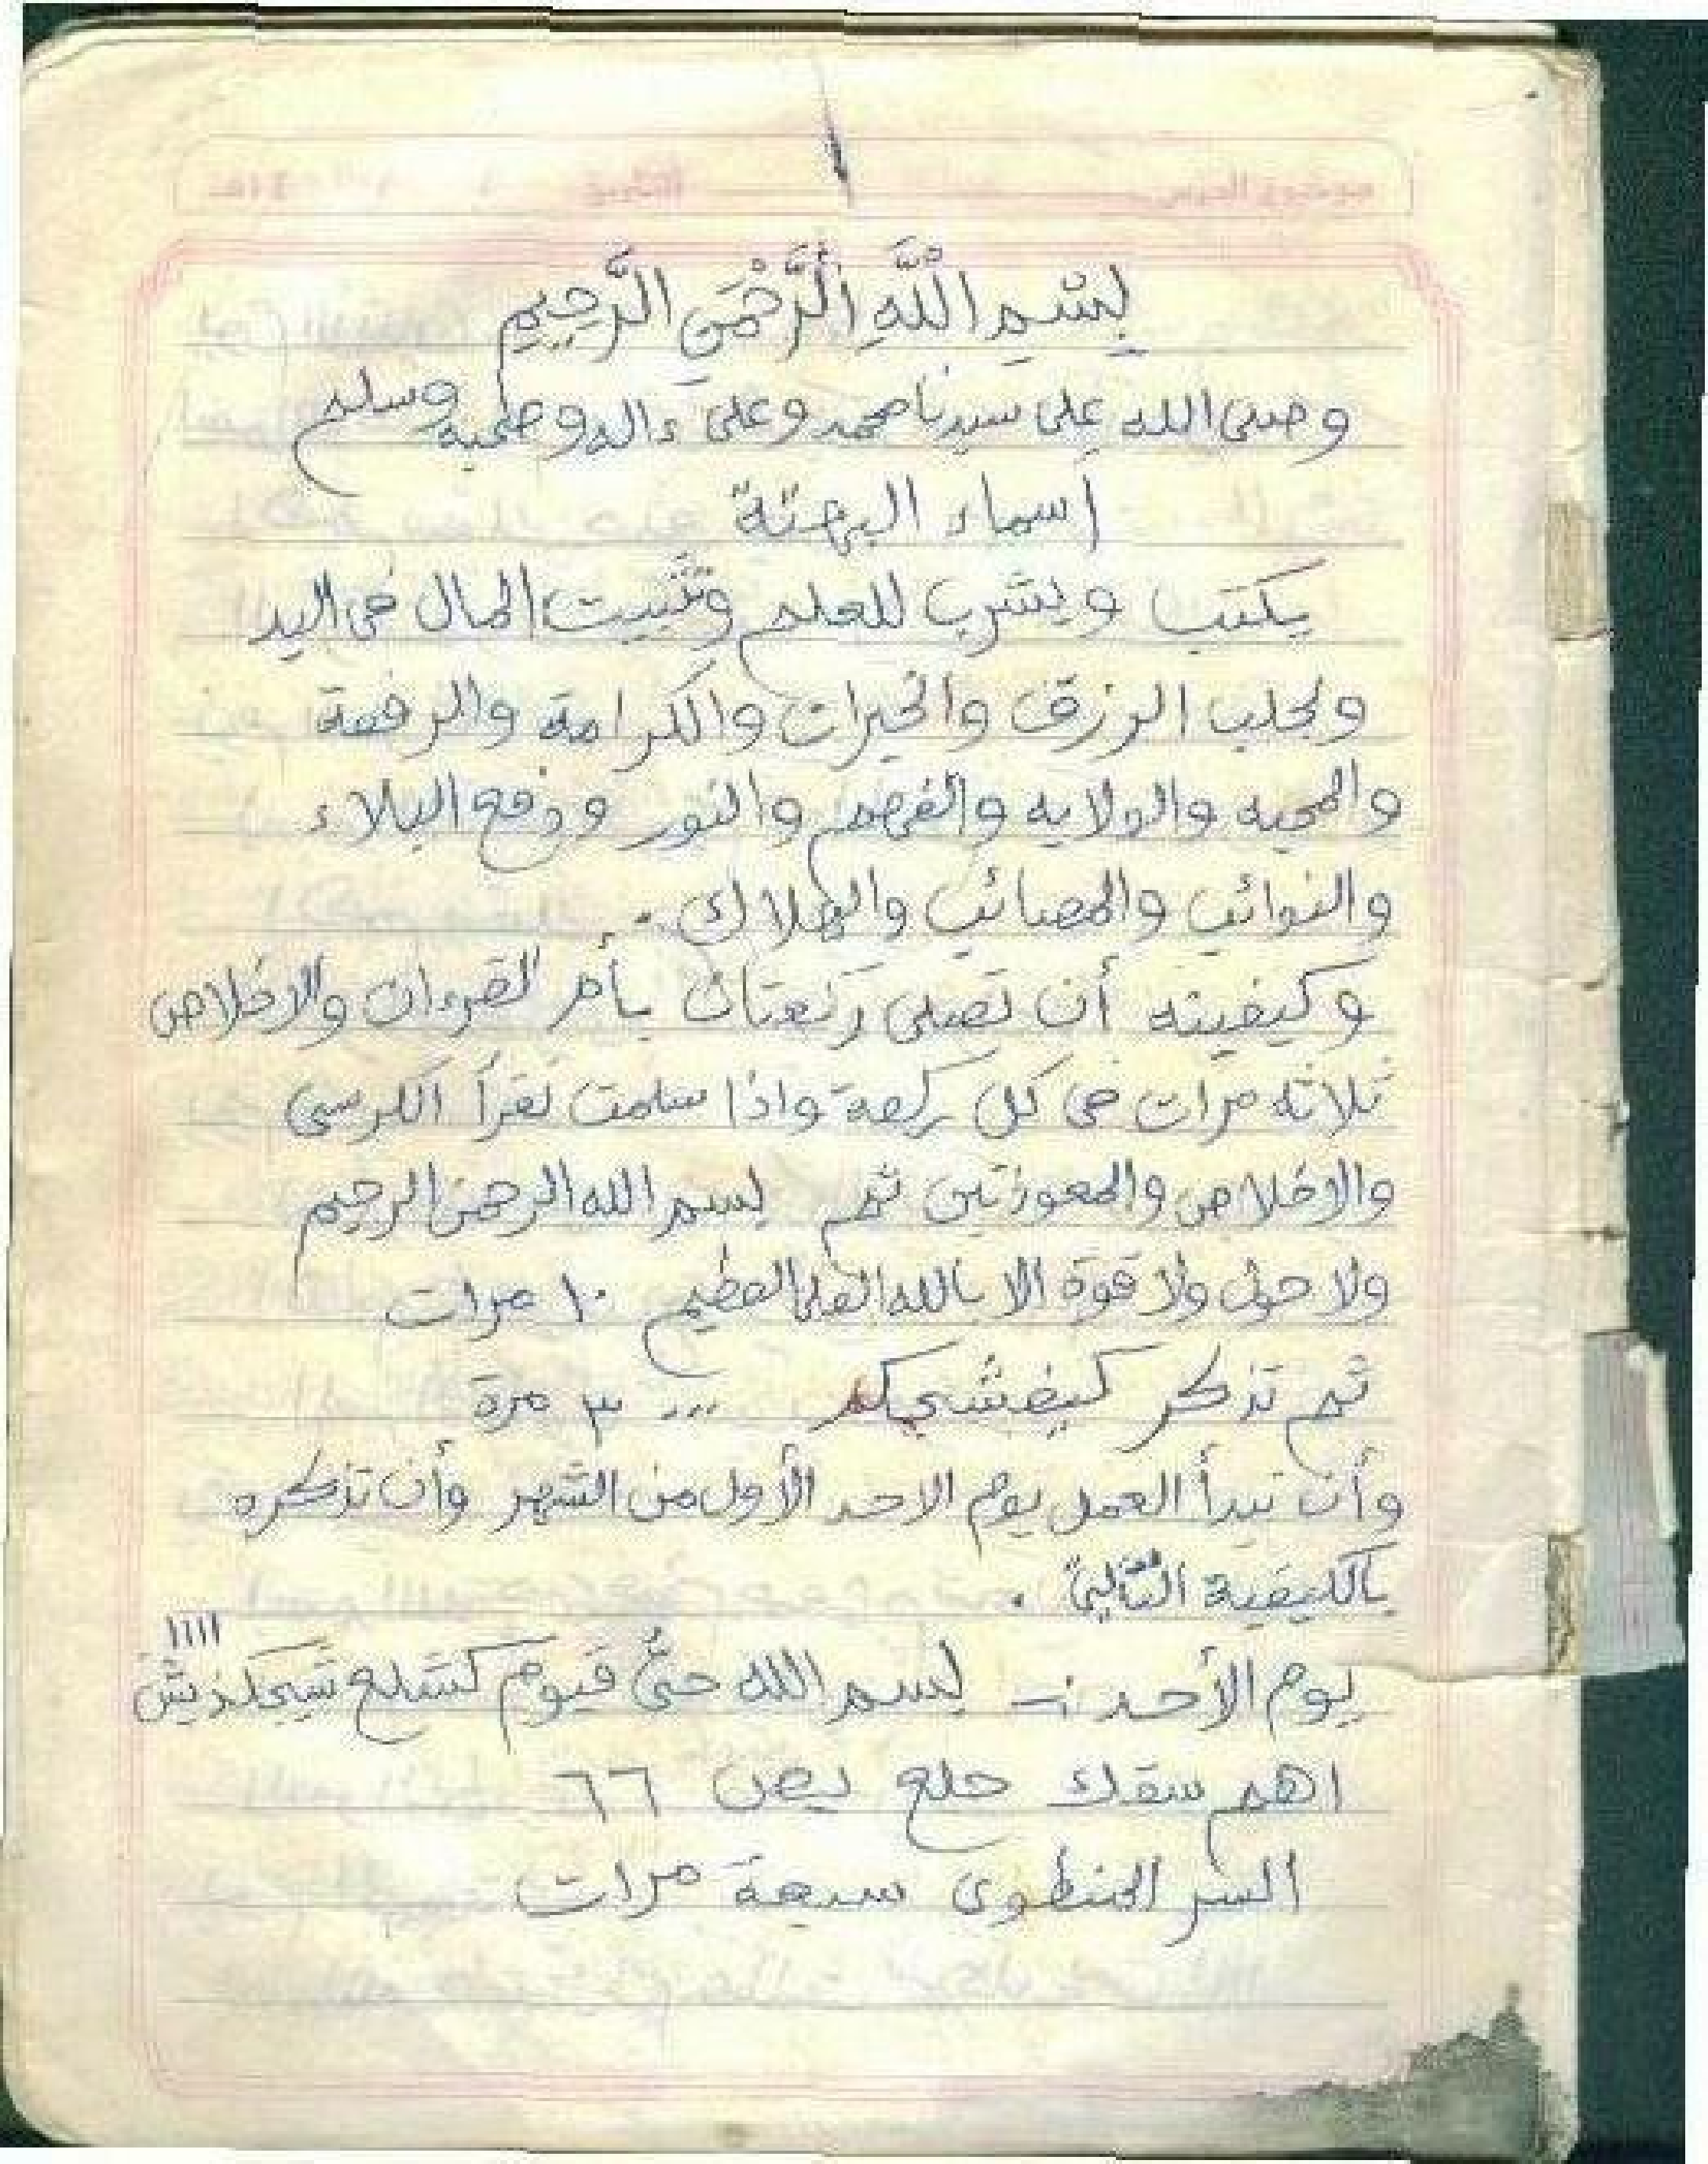 ١
بِسْمِ اللَّهِ الرَّحْمَنِ الرَّحِيمِ
وصلى الله على سيدنا محمد وعلى ءاله وصحبه وسلم
أسماء البرهتة
يكتب ويشرب للعلم وتثبيت المال في اليد
ولجلب الرزق والخيرات والكرامة والرفعة
والمحبه والولايه والفهم والنور ودفع البلاء
والنوائب والمصائب والهلاك.
وكيفيته أن تصلى ركعتان بأم القرءان والاخلاص
ثلاثه مرات في كل ركعة واذا سلمت تقرأ الكرسى
والاخلاص والمعوذتين ثم بسم الله الرحمن الرحيم
ولا حول ولا قوة الا بالله العلى العظيم ١٠ مرات
ثم تذكر ... ٣ مرة
وأن تبدأ العمل يوم الاحد الأول من الشهر وأن تذكره
بالكيفية التالية.
يوم الأحد :- بسم الله حى قيوم
اهم سقك حلع يص ٦٦
السر سبعة مرات